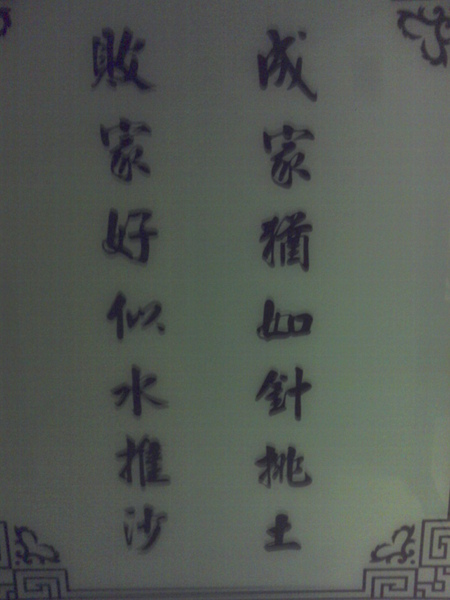 成家猶如針挑土
敗家好似水推沙